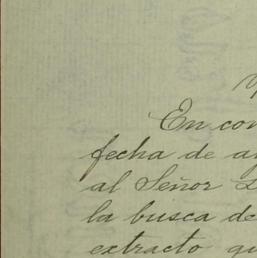 En con
fecha de a
al Señor
la busca de
extracto qu